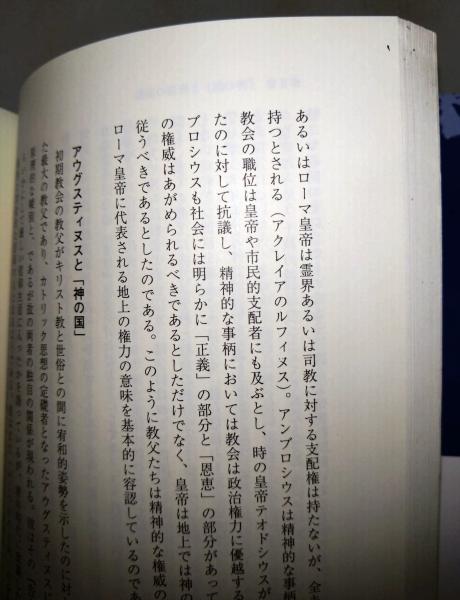 あるいはローマ皇帝は霊界あるいは司教に対する支配権は持たないが、全
持つとされる（アクレイアのルフィヌス）。アンブロシウスは精神的な事柄
教会の職位は皇帝や市民的支配者にも及ぶとし、時の皇帝テオドシウスが
たのに対して抗議し、精神的な事柄においては教会は政治権力に優越する
ブロシウスも社会には明らかに「正義」の部分と「恩恵」の部分があって
の権威はあがめられるべきであるとしただけでなく、皇帝は地上では神の
従うべきであるとしたのである。このように教父たちは精神的な権威の
ローマ皇帝に代表される地上の権力の意味を基本的に容認しているのであ
アウグスティヌスと「神の国」
初期教会の教父がキリスト教と世俗との間に宥和的姿勢を示したのに対
た最大の教父であり、カトリック思想の定礎者となったアウグスティヌスに
であるが故の両者の独自の関係が現われる。彼はその